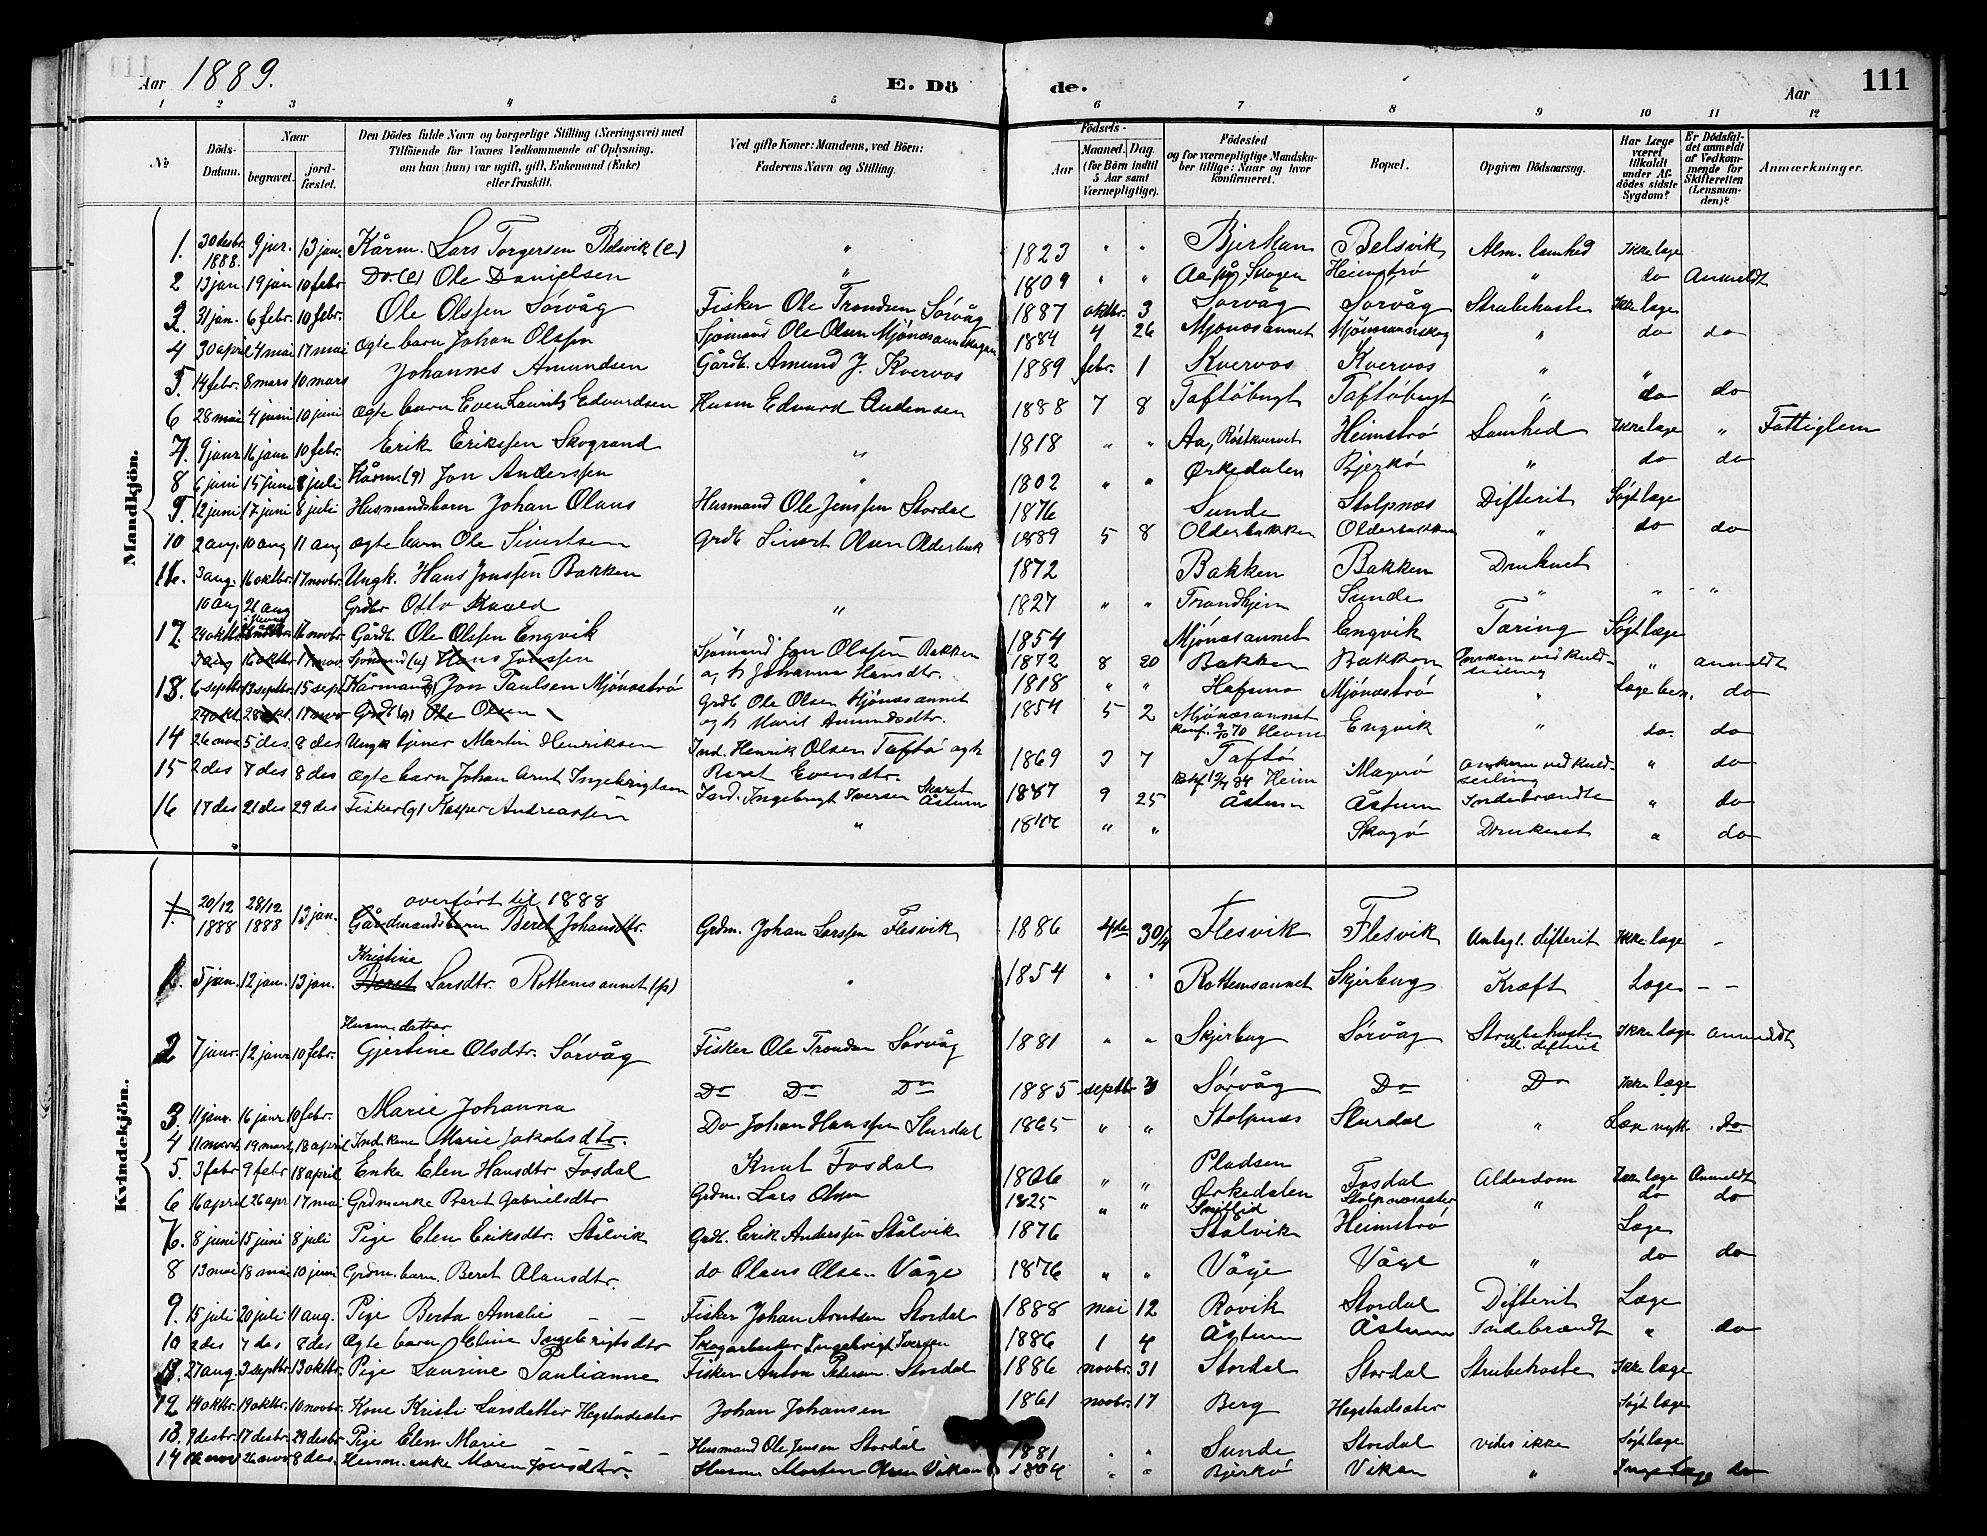 Aar 1889. E. Dö de. Aar 111
1 2 3 4 5 6 7 8 9 10 11 12
No Döds-Datum. Naar begravet. jord-fæstet. Den Dödes fulde Navn og borgerlige Stilling (Næringsvei) med Tilföiende for Voxnes Vedkommende af Oplysning, om han (hun) var ugift, gift, Enkemand (Enke) eller fraskilt. Ved gifte Koner: Mandens, ved Börn: Faderens Navn og Stilling. Födsels- Aar Maaned. Dag. (for Börn indtil 5 Aar samt Værnepligtige). Födested og for værnepligtige Mandskaber tillige: Naar og hvor konfirmeret. Bopæl. Opgiven Dödsaarsag. Har Læge været tilkaldt under Afdödes sidste Sygdom? Er Dödsfaldet anmeldt af Vedkommende for Skifteretten (Lensmanden)? Anmærkninger.
Mandkjön.
1. 30 desbr. 1888. 9 jan. 13 jan. Kårm. Lars Torgersen Belsvik (e) " 1823 " " Bjerkan Belsvik Alm. lamhed Ikke læge
2 13 jan. 19 jan 10 febr. Do. (e) Ole Danielsen " 1809 " " Aa Skogen Heimstrø " do Anmeldt
3. 31 jan. 6 febr. 10 febr. Ole Olssen Sørvåg Fisker Ole Trondsen Sørvåg 1887 oktbr. 3 Sørvåg Sørvåg Strubehoste Ikke læge
4 30 april 4 mai 17 mai ægte barn Johan Olssen Sjømand Ole Olsen Mjønesaunskogen 1884 4 26 Mjønesaunet Mjønesaunskog " do do
5. 14 febr. 8 mars 10 mars Johannes Amundsen Gårdb. Amund J. Kvervos 1889 febr. 1 Kvervos Kvervos " "
6 28 mai 4 juni 10 juni ægte barn Even Laurits Edvardsen Husm Edvard Andersen 1888 7 8 Taftøbugt Taftøbugt " do do
7. 9 janr 16 janr 10 febr. Erik Erikssen Skogrand " 1818 " " Aa, Røstkvervet Heimstrø Lamhed Ikke læge " Fattiglem
8 6 juni 15 juni 8 juli Kårm. (g) Jon Anderssen 1802 " " Ørkedalen Bjerkø " do do
9. 12 juni 17 juni 8 juli Husmandsbarn Johan Olaus Husmand Ole Jenssen Stordal 1876 Sunde Stolpnes Difterit Søgt læge
10 2 aug. 10 aug 11 aug ægte barn Ole Sivertsen Grdb Sivert Olsen Olderbak 1889 5 8 Olderbakken Olderbakken " do do
11. 3 aug. 16 oktbr. 17 novbr. Ungk. Hans Jonssen Bakken 1872 Bakken Bakken Druknet
10 aug 21 aug Grdbr Otto Kaald " 1827 " " Trondhjem Sunde " " "
12. 24 oktbr. 16 novbr. Gårdb. Ole Olssen Engvik 1854 Mjønesaunet Engvik Tæring Søgt læge
3 aug 16 oktbr 17 nov. Sjømand (u) Hans Jonssen Sjømand Jon Olssen Bakken og h Johanna Hansdtr. 1872 8 20 Bakken Bakken Omkom ved kuldseiling " anmeldt
13. 6 septbr 13 septbr. 15 sept Kårmand Jon Paulsen Mjønestrø 1818 " " Hafsmo Mjønestrø " Læge ben. do
24 okt 28 okt. 17 nov Grdb (g) Ole Olsen Grdb Ole Olsen Mjønesaunet og h Marit Amundsdtr. 1854 5 2 Mjønesaunet Konf. 70 Hevne Engvik " do. do
14 26 nov 5 des 8 des Ungk tjener Martin Henriksen Ind. Henrik Olsen Taftø og h Beret Evensdtr. 1869 3 7 Taftø Konf 84 Heim Magerø omkom ved kuldseiling " do
15 2 des 7 des 8 des ægte barn Johan Arnt Ingebrigtsen Ind. Ingebrigt Iversen Skaret Åstum 1887 9 25 Åstum Åstum Indebrændte " do
16 17 des 21 des 29 des Fisker (g) Kasper Andreassen " " " Skogø Druknet " do
Kvindekjön.
1. 20/12 1888 28/12 1888 13 jan. overført til 1888
Gårdmandsbarn Beret Johansdtr. Grdm. Johan Larssen Flesvik 1886 4de 30/4 Flesvik Flesvik Antagl. difterit Ikke læge -
1. 5 jan. 12 jan. 13 jan. Kristine Beret Larsdtr. Rottemsaunet (p) " 1854 " " Rottemsaunet Skjerbug Kræft Læge - -
2 7 janr. 12 janr 10 febr. Husm datter Gjertine Olsdtr. Sørvåg Fisker Ole Trondsen Sørvåg 1881 " " Skjerbug Sørvåg Strubehoste el. difterit Ikke læge anmeldt
3. 11 janr. 16 janr 10 febr. Marie Johanna Do Do Do 1885 septbr 3 Sørvåg Do Do Ikke læge
4 11 marts 19 marts 18 april Ind. kone Marie Jakobsdtr. Do Johan Hanssen Slurdal 1865 " " Stolpnes Slurdal " do
5. 3 febr 9 febr 18 april Enke Elen Hansdtr Fosdal Knut Fosdal 1806 " " Pladsen Fosdal Alderdom Ikke læge Anmeldt
6 16 april 26 apr. 17 mai Grdm enke Beret Gabrielsdtr Grdm. Lars Olsen 1825 " " Ørkedalen Stolpnessæter " do do
7. 8 juni 15 juni 8 juli Pige Elen Eriksdtr. Stålvik Grdb. Erik Anderssen Stålvik 1876 Snillid Stålvik Heimstrø Læge
8 13 mai 18 mai 10 juni Grdm. barn. Beret Olausdtr. do Olaus Olsen Våge 1876 " " Våge Våge " do do
9. 15 juli 20 juli 11 aug. Pige Berta Amalie Fisker Johan Arntsen Stordal 1888 mai 12 Røvik Stordal Difterit Læge
10 2 des 7 des 8 des Ægte barn Eline Ingebrigtsdtr Skogarbeider Ingebrigt Iversen 1886 1 4 Åstum Åstum Indebrændt " do
11. 27 aug. 3 septbr. 13 oktbr. Pige Laurine Paulianne Fisker Anton Petersen Stordal 1886 novbr. 31 Stordal Stordal Strubehoste Ikke læge
12 14 oktbr. 19 oktbr. 10 novbr. Kone Kristi Larsdatter Hegstadsæter Johan Johansen 1861 novbr. 17 Berg Hegstadsæter Søgt læge
13. 9 desbr. 17 desbr. 29 desbr. Pige Elen Marie Husmand Ole Jensen Stordal 1881 " " Sunde Stordal vides ikke Søgt læge
14 nov 26 nov 8 des. Husm. enke Maren Jonsdtr. Husm Morten Olsen Vikan 1804 " " Bjerkø Vikan " Inge læge do